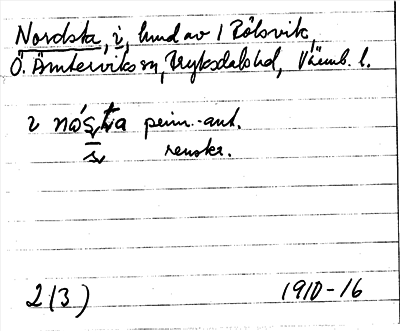 Nordsta, i, hmd av 1 Rölsvik,
Ö. Ämterviks sn, Fryksdals hd, Värml. l.
i nós̩t̩a prim.-ant.
renskr.
2(3) 1910-16